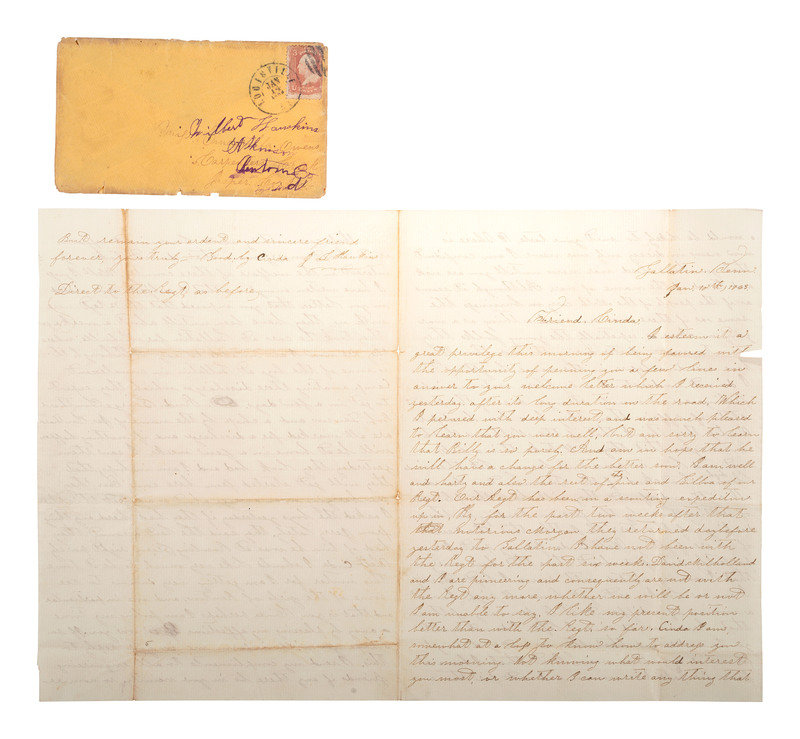 LOUISVILLE
Gilbert Hawkins
But remain your ardent and sincere friend
forever, yours truly
Direct to the Regt, as before
Gallatin. Tenn.
Jan 10th, 1863
Friend. Cinda.
I esteem it a
great privilege this morning of being favored with
the opportunity of penning you a few lines in
answer to your welcome letter which I received
yesterday, after its long duration on the road, Which
I perused with deep interest, and was much pleased
to learn that you were well, but am sorry to learn
that Billy is so poorly, And am in hope that he
will have a change for the better soon. I am well
and harty and also the rest of the and of our
Regt. Our Regt has been on a scouting expedition
up in Ky for the past two weeks after that
that Morgan they returned day before
yesterday to Gallatin I have not been with
the Regt for the past six weeks. David Milholland
and I are pioneering and consequently are not with
the Regt any more, whether we will be or not
I am unable to say. I like my present position
better than with the Regt, so far. Cinda I am
somewhat at a to know how to address you
this morning. Not knowing what would interest
you most, or whether I can write any thing that